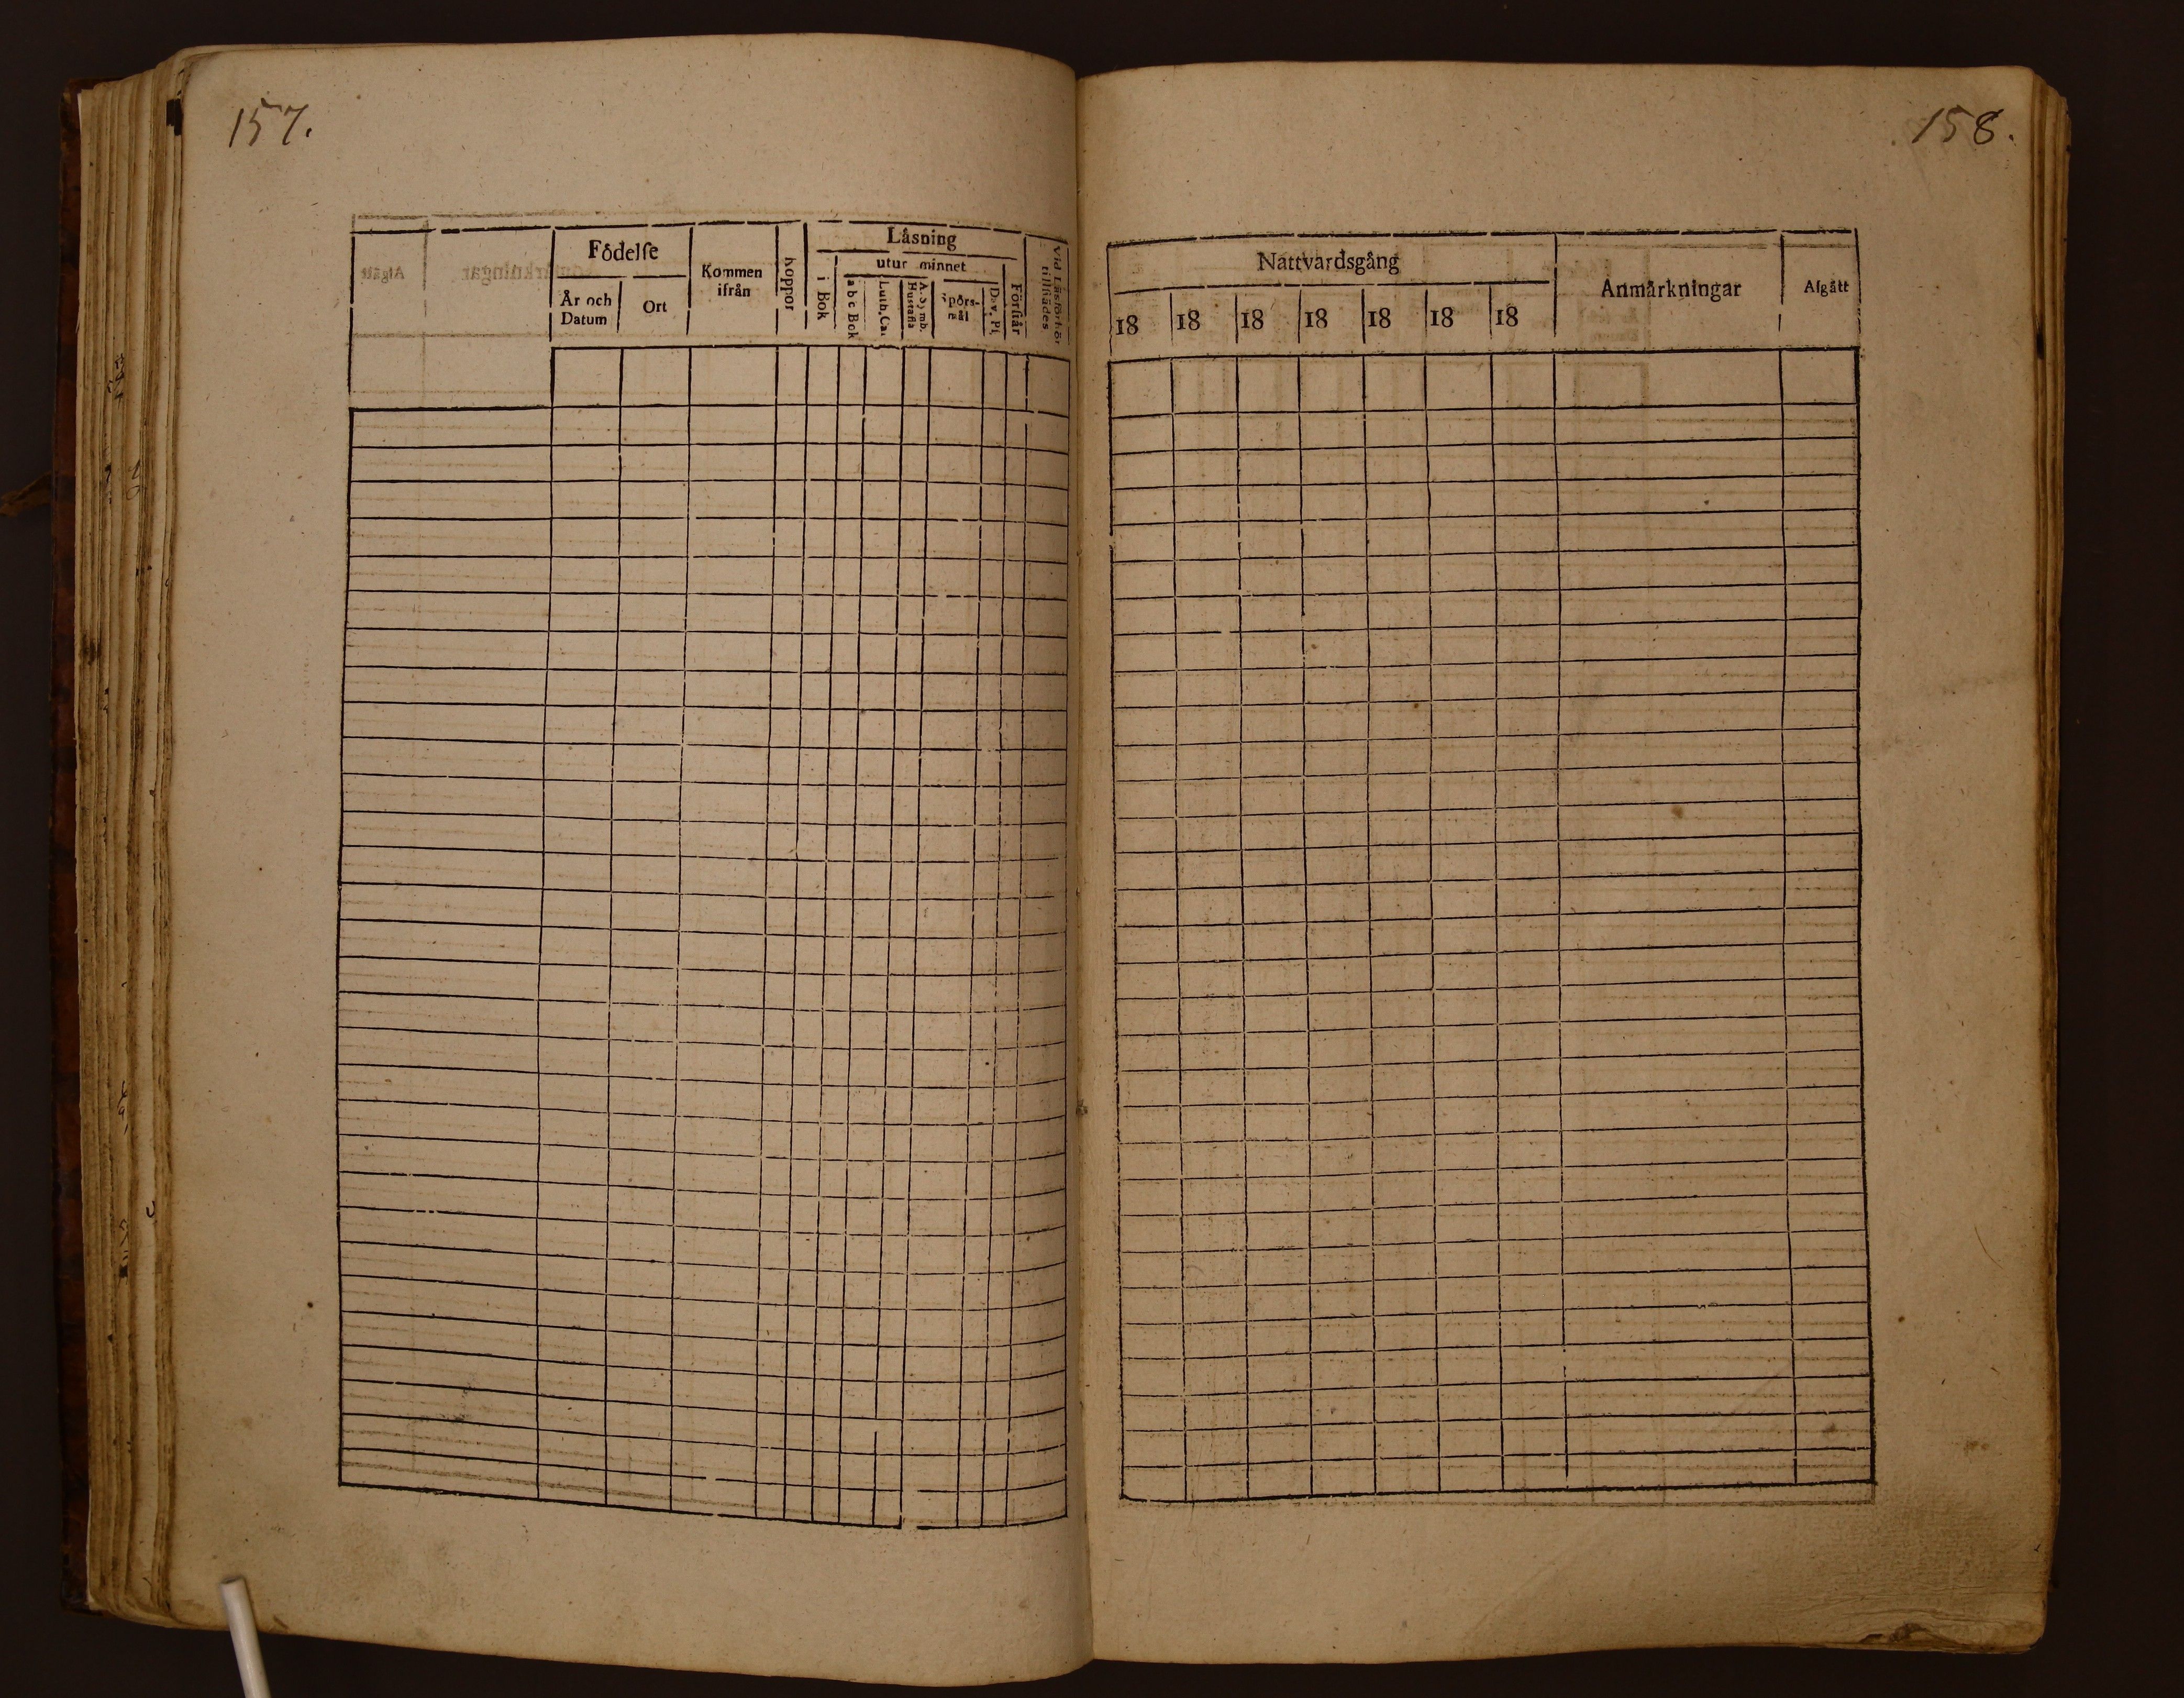 157.
Födelse
År och Datum
Ort
Kommen ifrån
Koppor
Läsning
i Bok
utur minnet
a b c Bok
Luth. Cat.
A. Symb. Hustafla
Spörs-mål
Dav. Ps.
Förstår
Vid Läsförhör tillstädes
158.
Nattvardsgång
18 18 18 18 18 18 18
Anmärkningar
Afgått